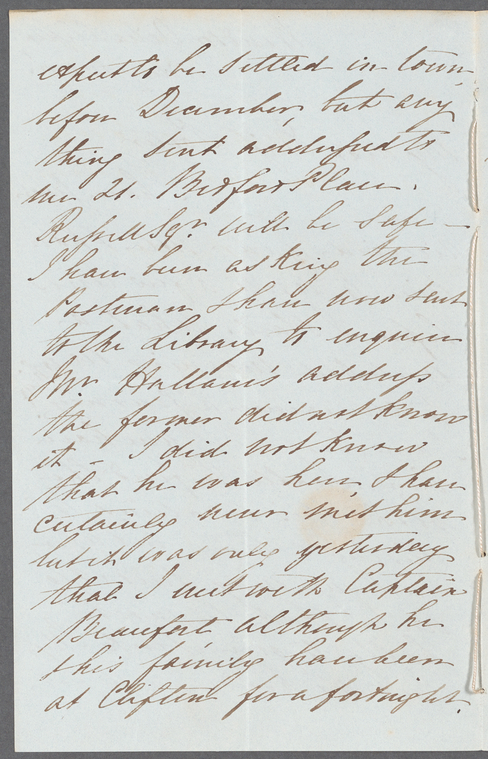 expect to be settled in town
before December, but any
thing sent addressed to
me 21. Bedford Place.
Russell Sqr. will be safe —
I have been asking the
Postman & have now sent
to the Library to enquire
Mr Hallam's address
the former did not know
it – I did not know
that he was here & have
certainly never met him
but it was only yesterday
that I met with Captain
Beaufort although he
& his family have been
at Clifton for a fortnight.